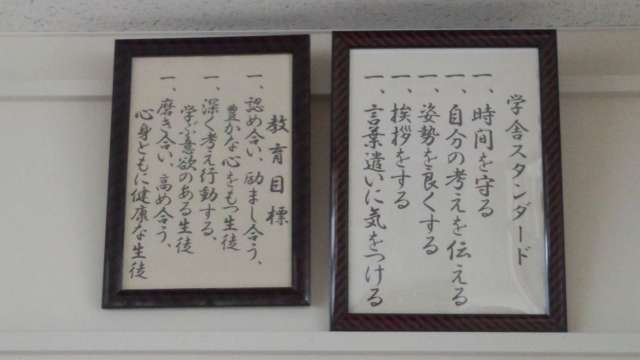 学舎スタンダード
一、時間を守る
一、自分の考えを伝える
一、姿勢を良くする
一、挨拶をする
一、言葉遣いに気をつける
教育目標
一、認め合い、励まし合う、
豊かな心をもつ生徒
一、深く考え行動する、
学ぶ意欲のある生徒
一、磨き合い、高め合う、
心身ともに健康な生徒